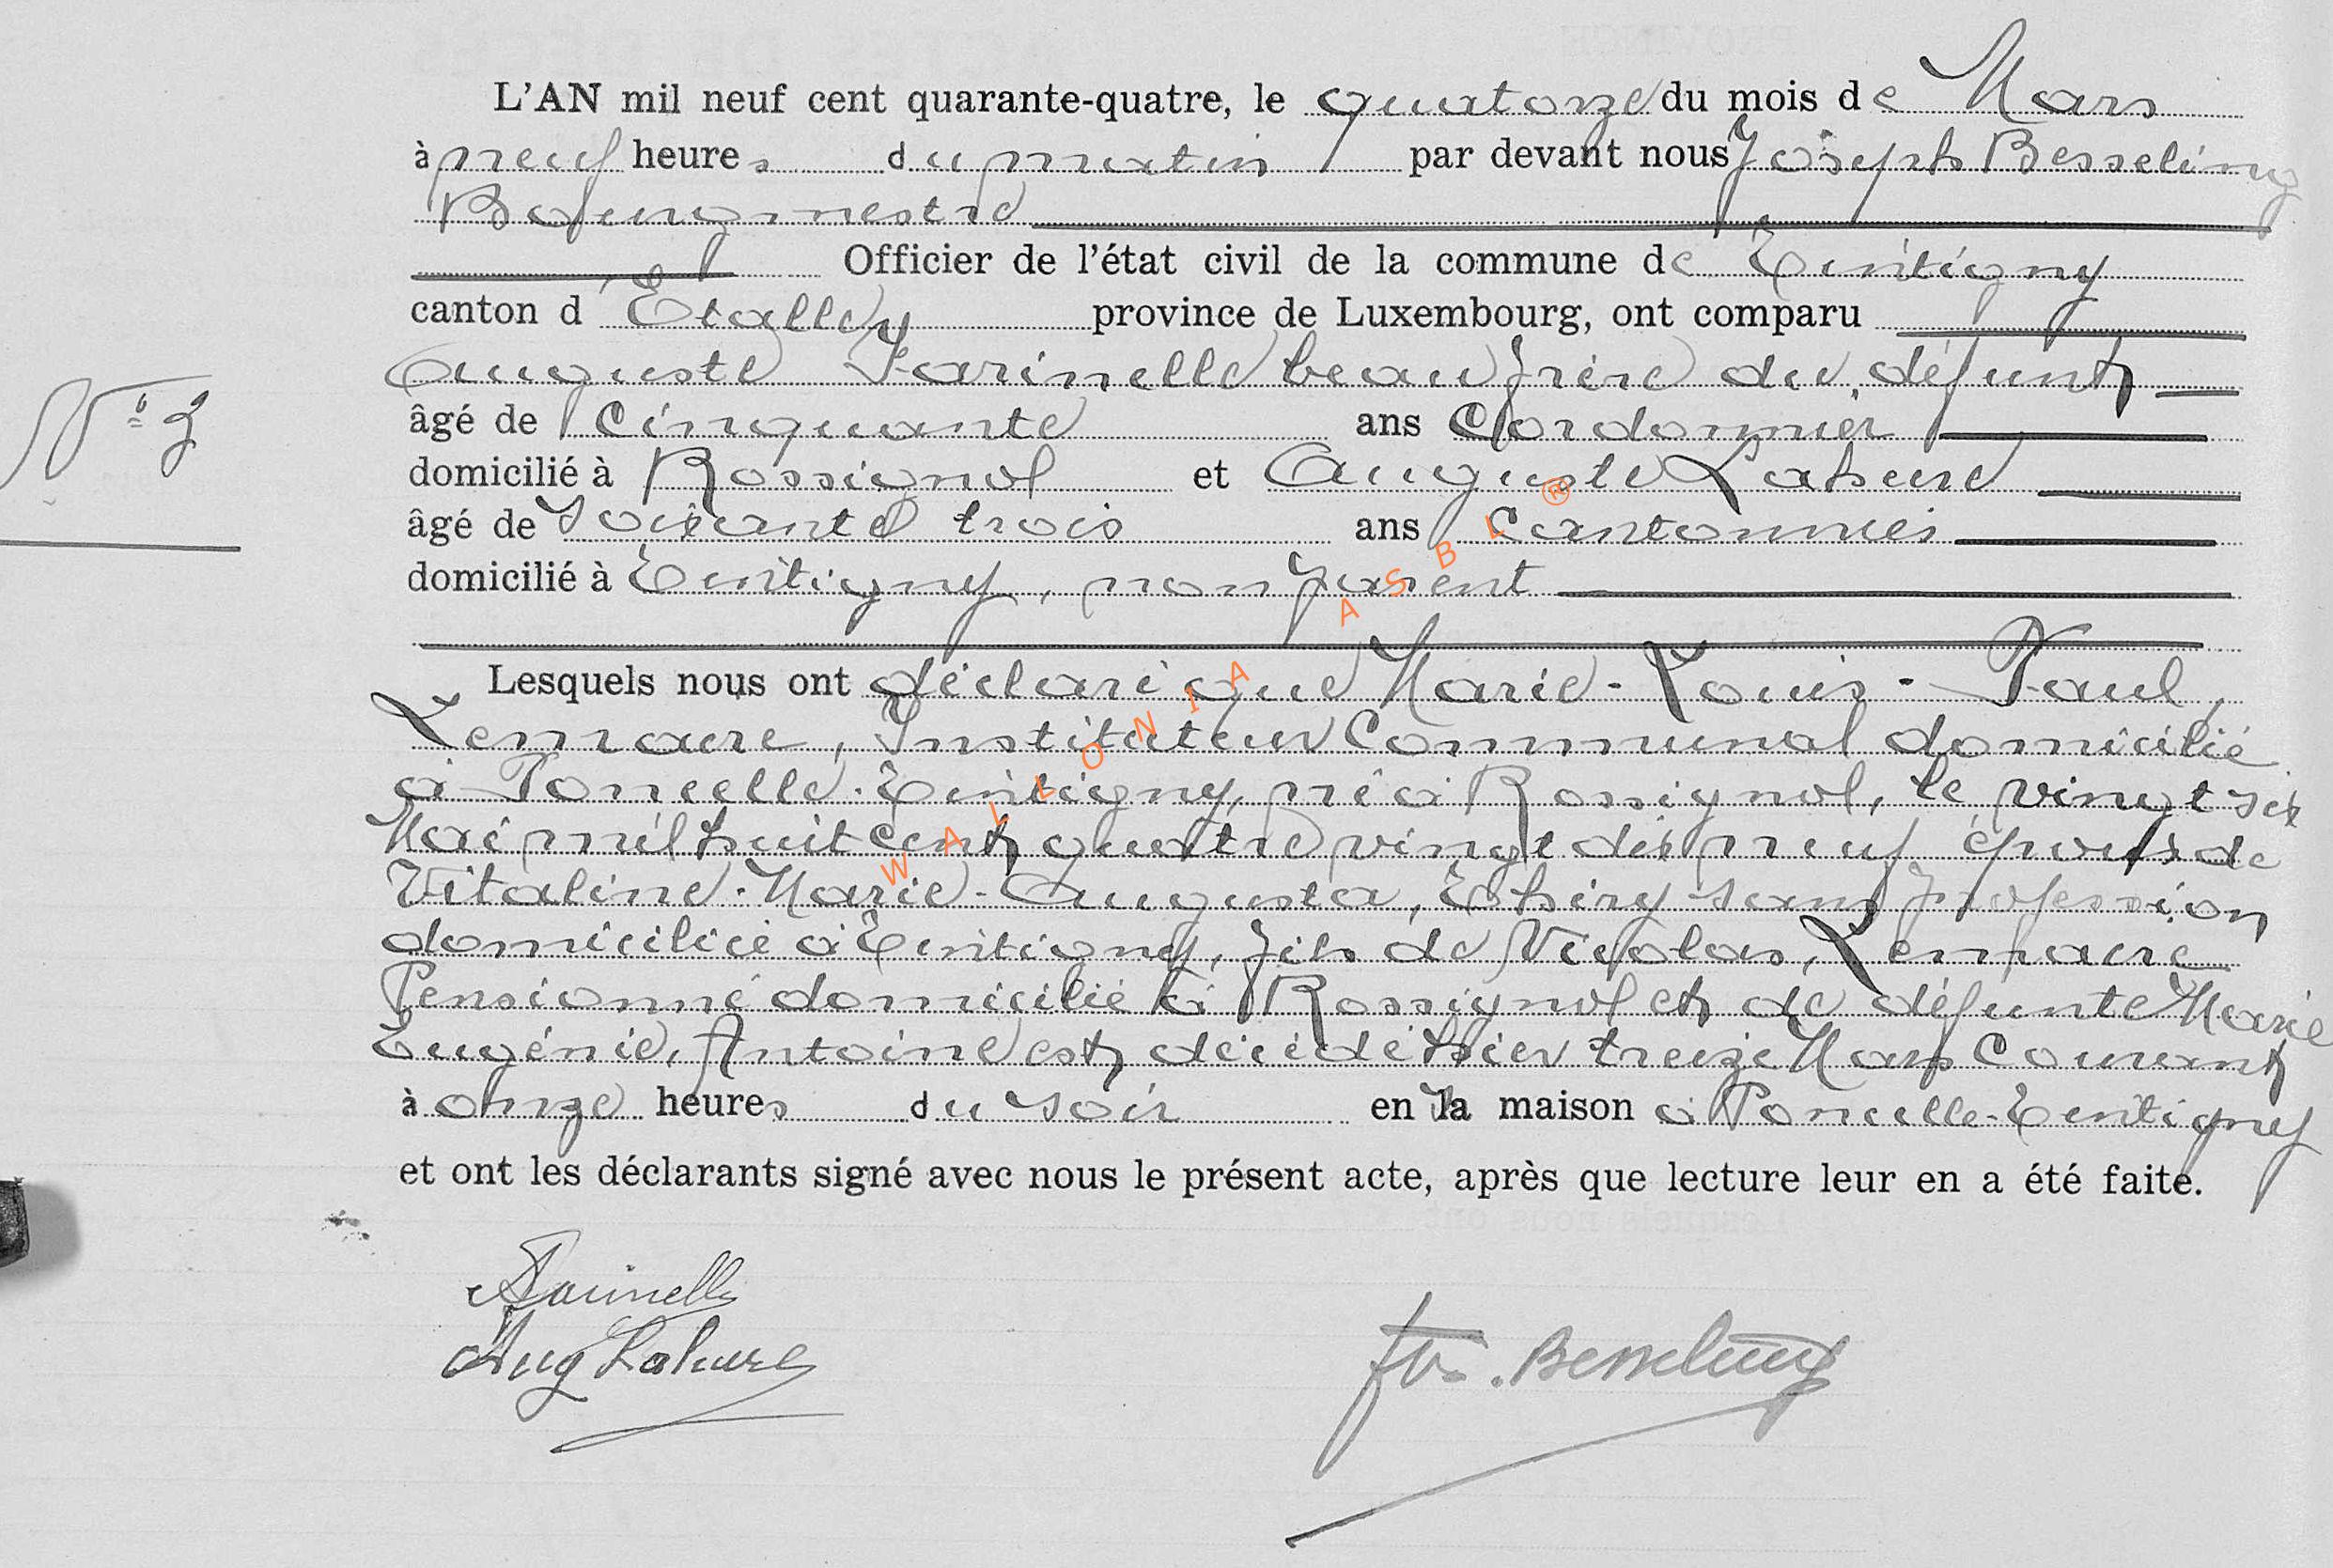 L'AN mil neuf cent quarante-quatre, le quatorze du mois de Mars
à neuf heures du matin par devant nous Joseph Besseling
Bourgmestre
Officier de l'état civil de la commune de Tintigny
canton d'Etalle province de Luxembourg, ont comparu
Auguste Farinelle beau frère du défunt
âgé de Cinquante ans Cordonnier
N° 3
domicilié à Rossignol et Auguste Lahure
âgé de Soixante trois ans Cantonnier
domicilié à Tintigny, non parent
Lesquels nous ont déclaré que Marie-Louis-Paul,
Lemaire, Instituteur Communal domicilié
à Poncelle-Tintigny, né à Rossignol, le vingt six
Mai mil huit cent quatre vingt dix neuf époux de
Vitaline-Marie-Augusta, Thiry sans profession
domiciliée à Tintigny, fils de Nicolas, Lemaire
Pensionné domicilié à Rossignol et de défunte Marie
Eugénie, Antoine est décédé hier treize Mars Courant
à onze heures du soir en la maison à Poncelle-Tintigny
et ont les déclarants signé avec nous le présent acte, après que lecture leur en a été faite.
Farinelle
Aug Lahure
Jos. Besseling
WALLONIA ASBL ®